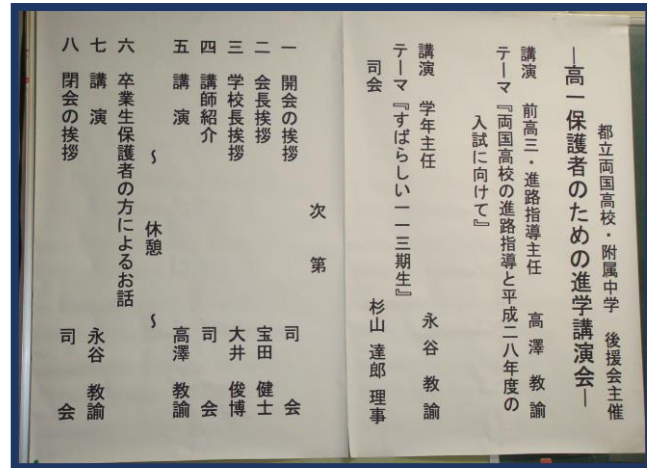 都立両国高校・附属中学 後援会主催
―高一保護者のための進学講演会―
講演 前高三・進路指導主任 高澤 教諭
テーマ『両国高校の進路指導と平成二八年度の
入試に向けて』
講演 学年主任 永谷 教諭
テーマ『すばらしい一一三期生』
司会 杉山 達郎 理事
次 第
一 開会の挨拶 司 会
二 会長挨拶 宝田 健士
三 学校長挨拶 大井 俊博
四 講師紹介 司 会
五 講 演 高澤 教諭
～ 休憩 ～
六 卒業生保護者の方によるお話
七 講 演 永谷 教諭
八 閉会の挨拶 司 会